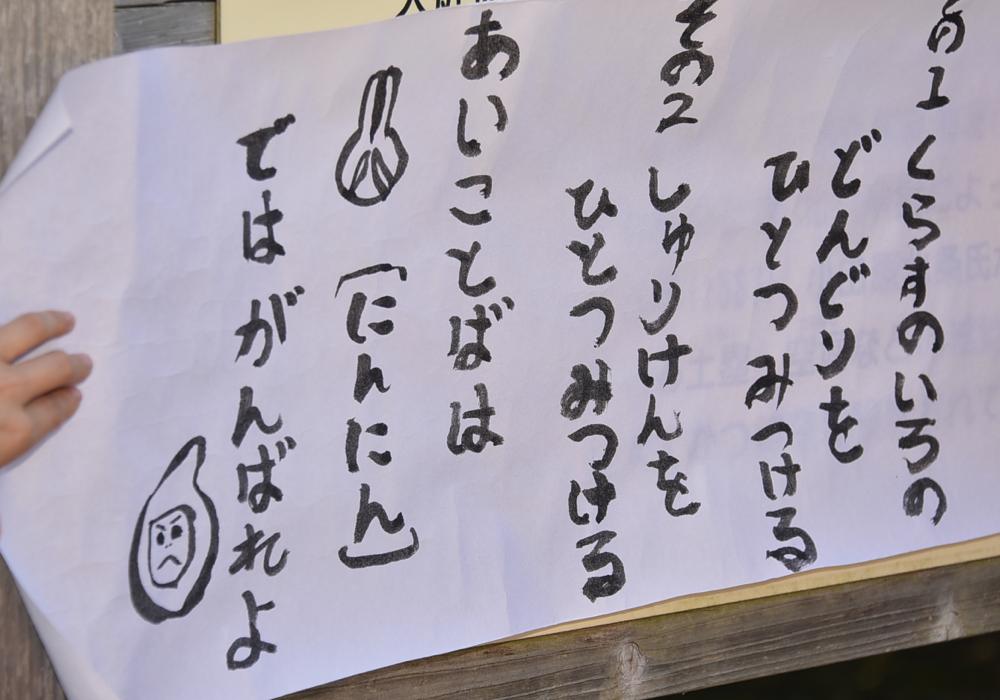 の1 くらすのいろの
どんぐりを
ひとつみつける
その2 しゅりけんを
ひとつみつける
あいことばは
「にんにん」
では がんばれよ